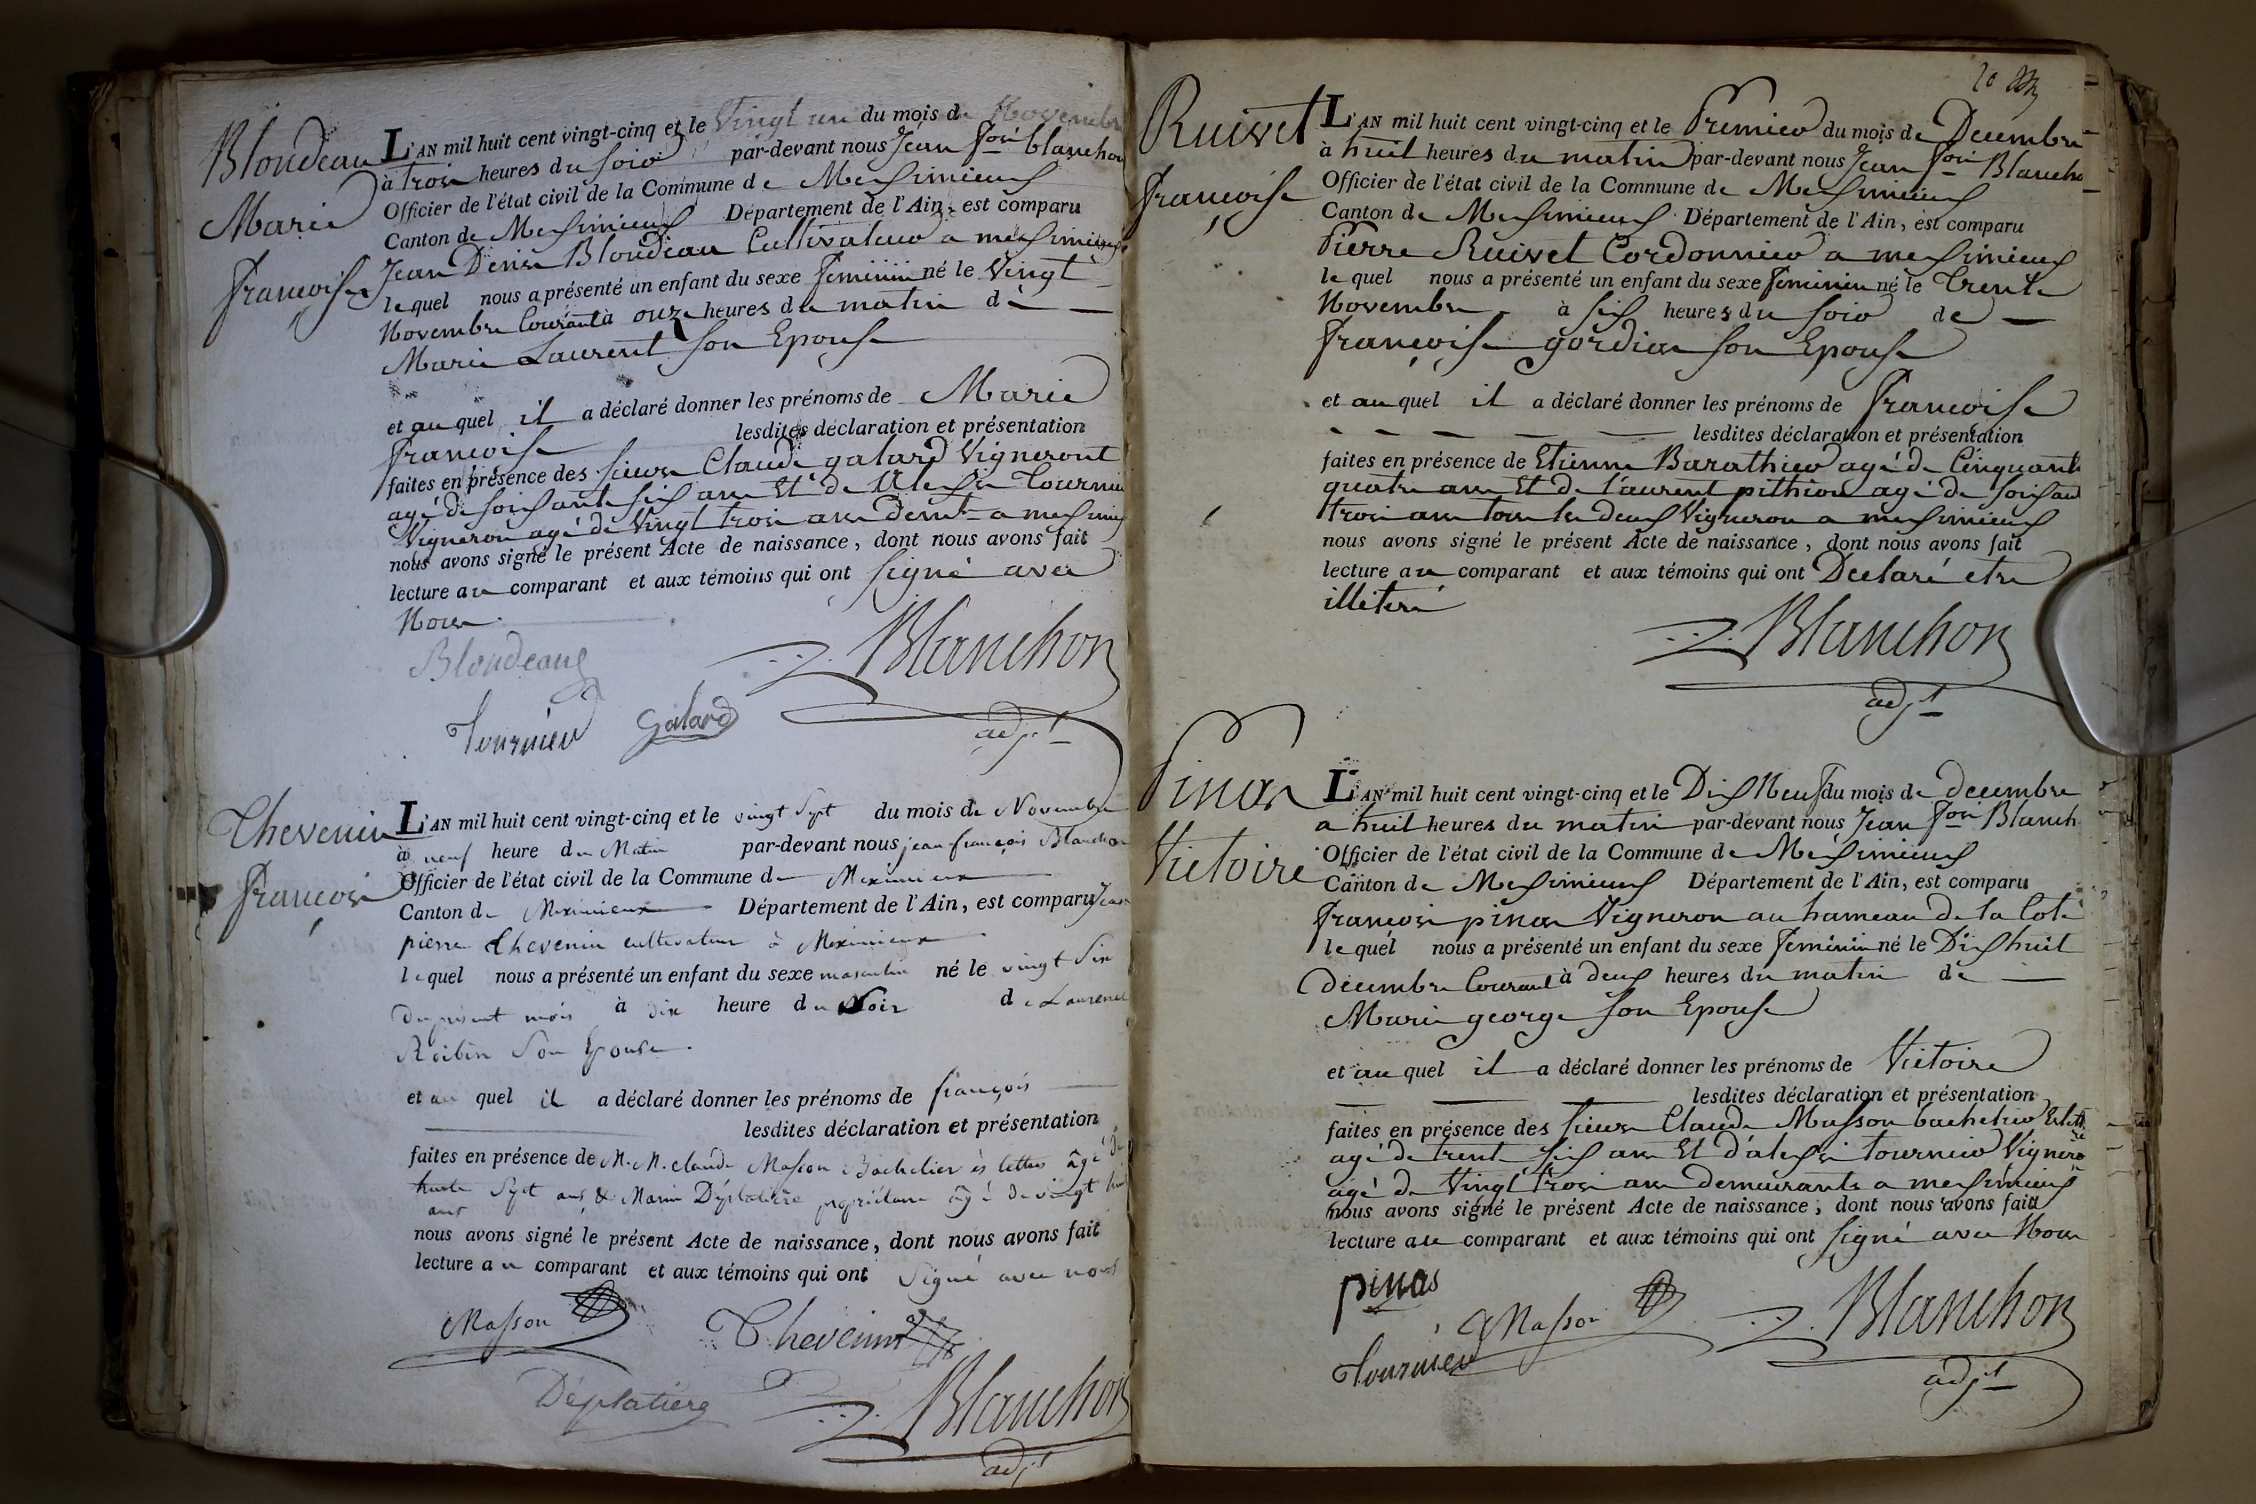 Blondeau
Marie
françoise
L'AN mil huit cent vingt-cinq et le Vingt un du mois de Novembre
à trois heures du soir par-devant nous Jean fois blanchon
Officier de l'état civil de la Commune de Meximieux
Canton de Meximieux Département de l'Ain, est comparu
Jean Denis Blondeau Cultivateur a meximieux
lequel nous a présenté un enfant du sexe feminin né le Vingt
Novembre Courant à onze heures du matin de
Marie Laurent son Epouse
et au quel il a déclaré donner les prénoms de Marie
françoise lesdites déclaration et présentation
faites en présence des sieurs Claude galard Vigneront
agé de soisante six ans Et de Alexis Tournier
Vigneron agé de Vingt trois ans demt a meximieux
nous avons signé le présent Acte de naissance, dont nous avons fait
lecture au comparant et aux témoins qui ont signé avec
Nous.
Blondeau
Blanchon
Tournier Galard
adjt
Thevenin
françois
L'AN mil huit cent vingt-cinq et le vingt sept du mois de Novembre
à neuf heure du Matin par-devant nous jean françois Blanchon
Officier de l'état civil de la Commune de Meximieux
Canton de Meximieux Département de l'Ain, est comparu Jean
pierre Thevenin cultivateur à Meximieux
lequel nous a présenté un enfant du sexe masculin né le vingt Six
du présent mois à dix heure du Soir de Laurence
son Epouse.
et au quel il a déclaré donner les prénoms de françois
lesdites déclaration et présentation
faites en présence de M. M. claude Masson Bachelier ès lettres âgé de
trente Sept ans & Marin Déplatière propriétaire âgé de vingt huit
ans
nous avons signé le présent Acte de naissance, dont nous avons fait
lecture au comparant et aux témoins qui ont Signé avec nous
Masson Thevenin
Déplatière Blanchon
adjt
20
Ruivet
françoise
L'AN mil huit cent vingt-cinq et le Premier du mois de Decembre
à huit heures du matin par-devant nous Jean fois Blancho
Officier de l'état civil de la Commune de Meximieux
Canton de Meximieux Département de l'Ain, est comparu
Pierre Ruivet Cordonnier a meximieux
le quel nous a présenté un enfant du sexe feminin né le Trente
Novembre à six heures du soir de
françoise gordian son Epouse
et au quel il a déclaré donner les prénoms de françoise
lesdites déclaration et présentation
faites en présence de Etienne Barathier agé de Cinquante
quatre ans Et de Laurent pithiou agé de soisante
trois ans tous les deux Vigneron a meximieux
nous avons signé le présent Acte de naissance, dont nous avons fait
lecture au comparant et aux témoins qui ont Declaré etre
illiteré
Blanchon
adjt
Pinas
Victoire
L'AN mil huit cent vingt-cinq et le Dix Neuf du mois de decembre
a huit heures du matin par-devant nous Jean fois Blanch
Officier de l'état civil de la Commune de Meximieux
Canton de Meximieux Département de l'Ain, est comparu
françois pinas Vigneron au hameau de la Cote
le quel nous a présenté un enfant du sexe feminin né le Dix huit
decembre Courant à deux heures du matin de
Marie george son Epouse
et au quel il a déclaré donner les prénoms de Victoire
lesdites déclaration et présentation
faites en présence des sieurs Claude Masson bachelier
agé de trente six ans Et d'alexis tournier Vigneron
agé de Vingt trois ans demeurants a meximieux
nous avons signé le présent Acte de naissance, dont nous avons fait
lecture au comparant et aux témoins qui ont signé avec Nous
pinas
Masson Blanchon
Tournier
adjt